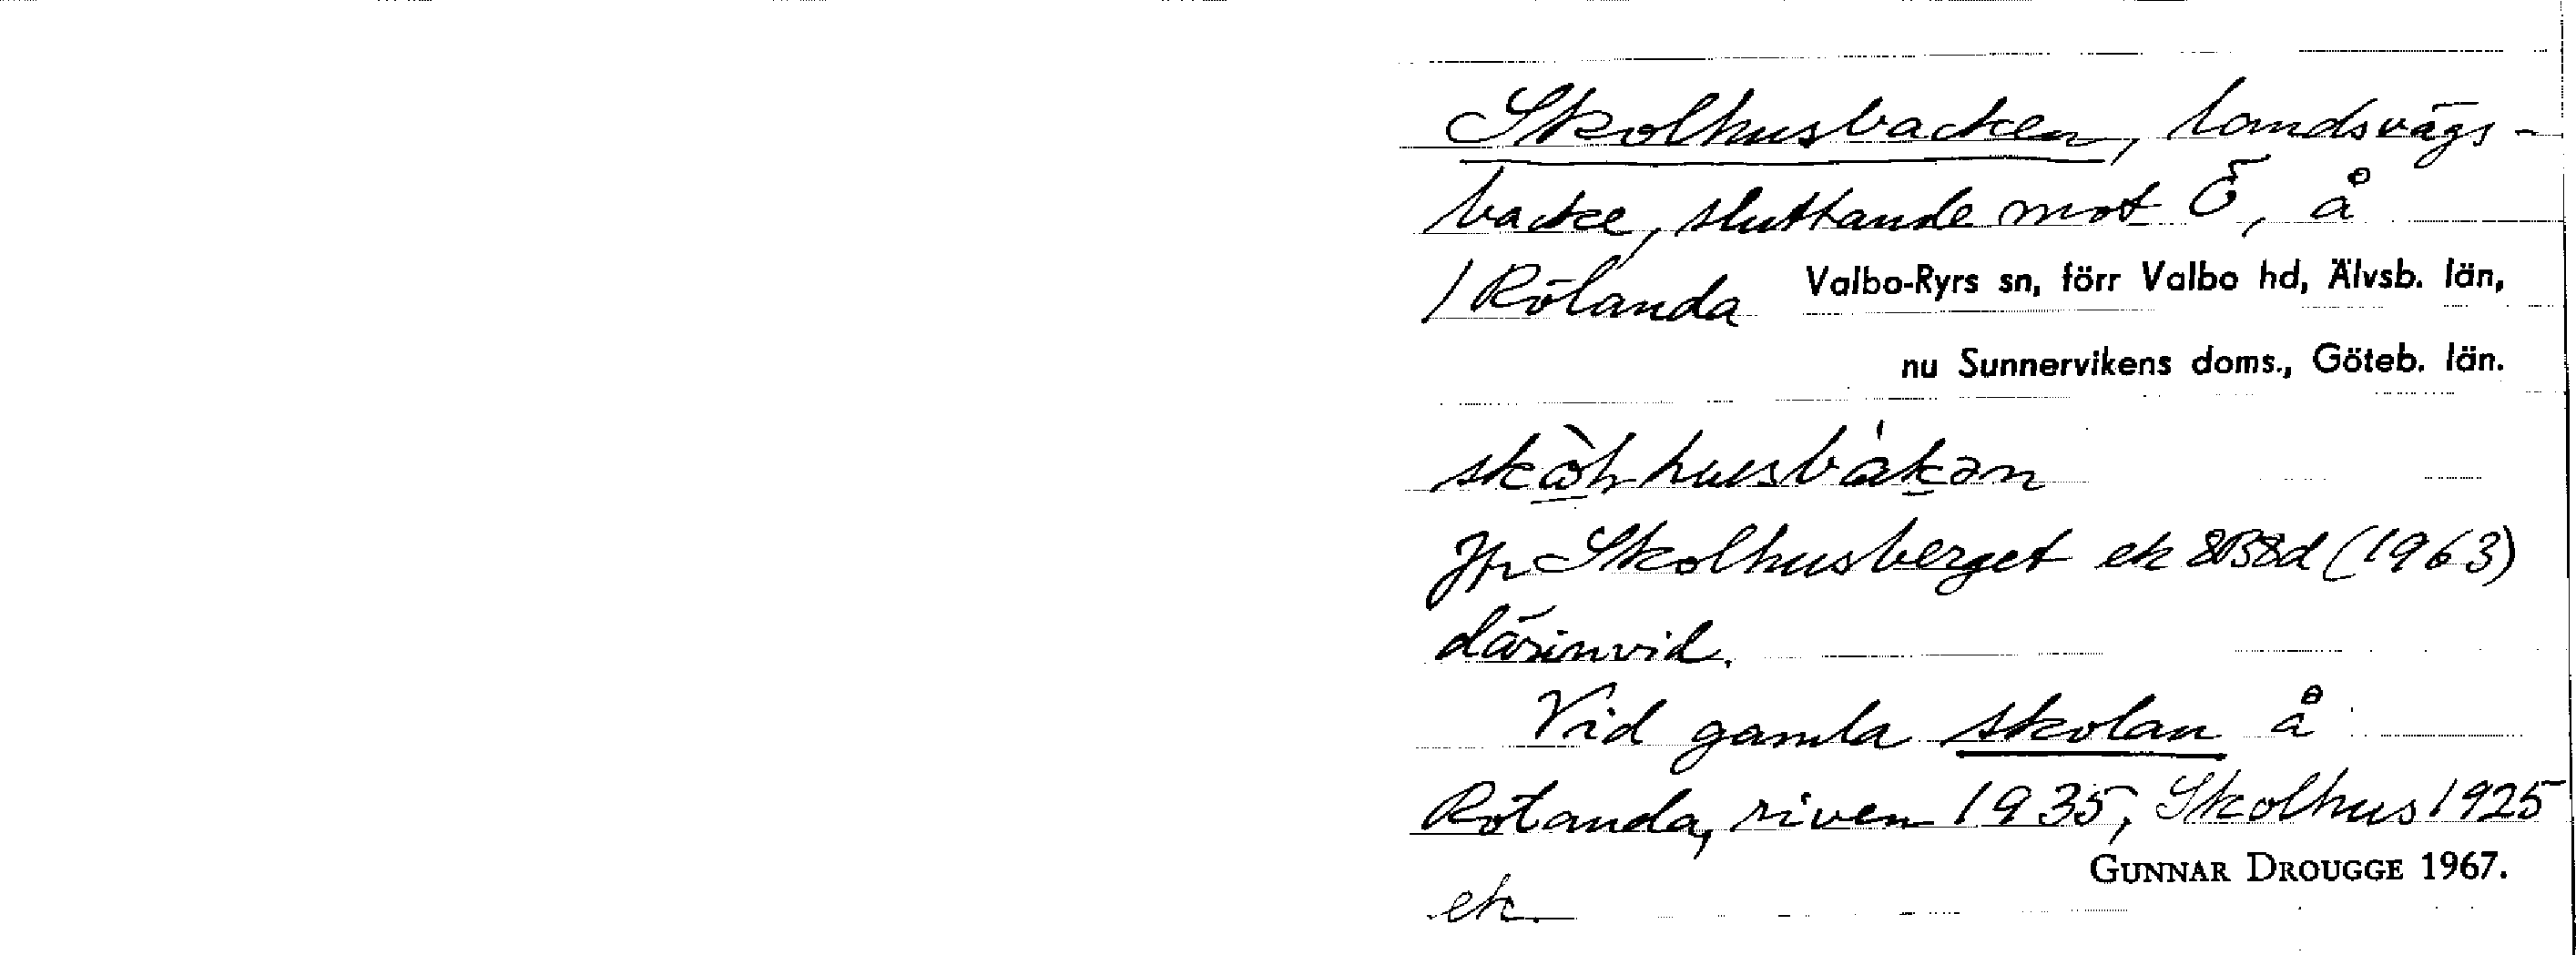 Skolhusbacken, landsvägs-
backe, sluttande mot Ö, å
/ Rölanda Valbo-Ryrs sn, förr Valbo hd, Älvsb. län,
nu Sunnervikens doms., Göteb. län.
Jfr Skolhusberget ek 8B8d (1963)
därinvid.
Vid gamla skolan å
Rölanda, riven 1935, Skolhus 1925
GUNNAR DROUGGE 1967.
ek.